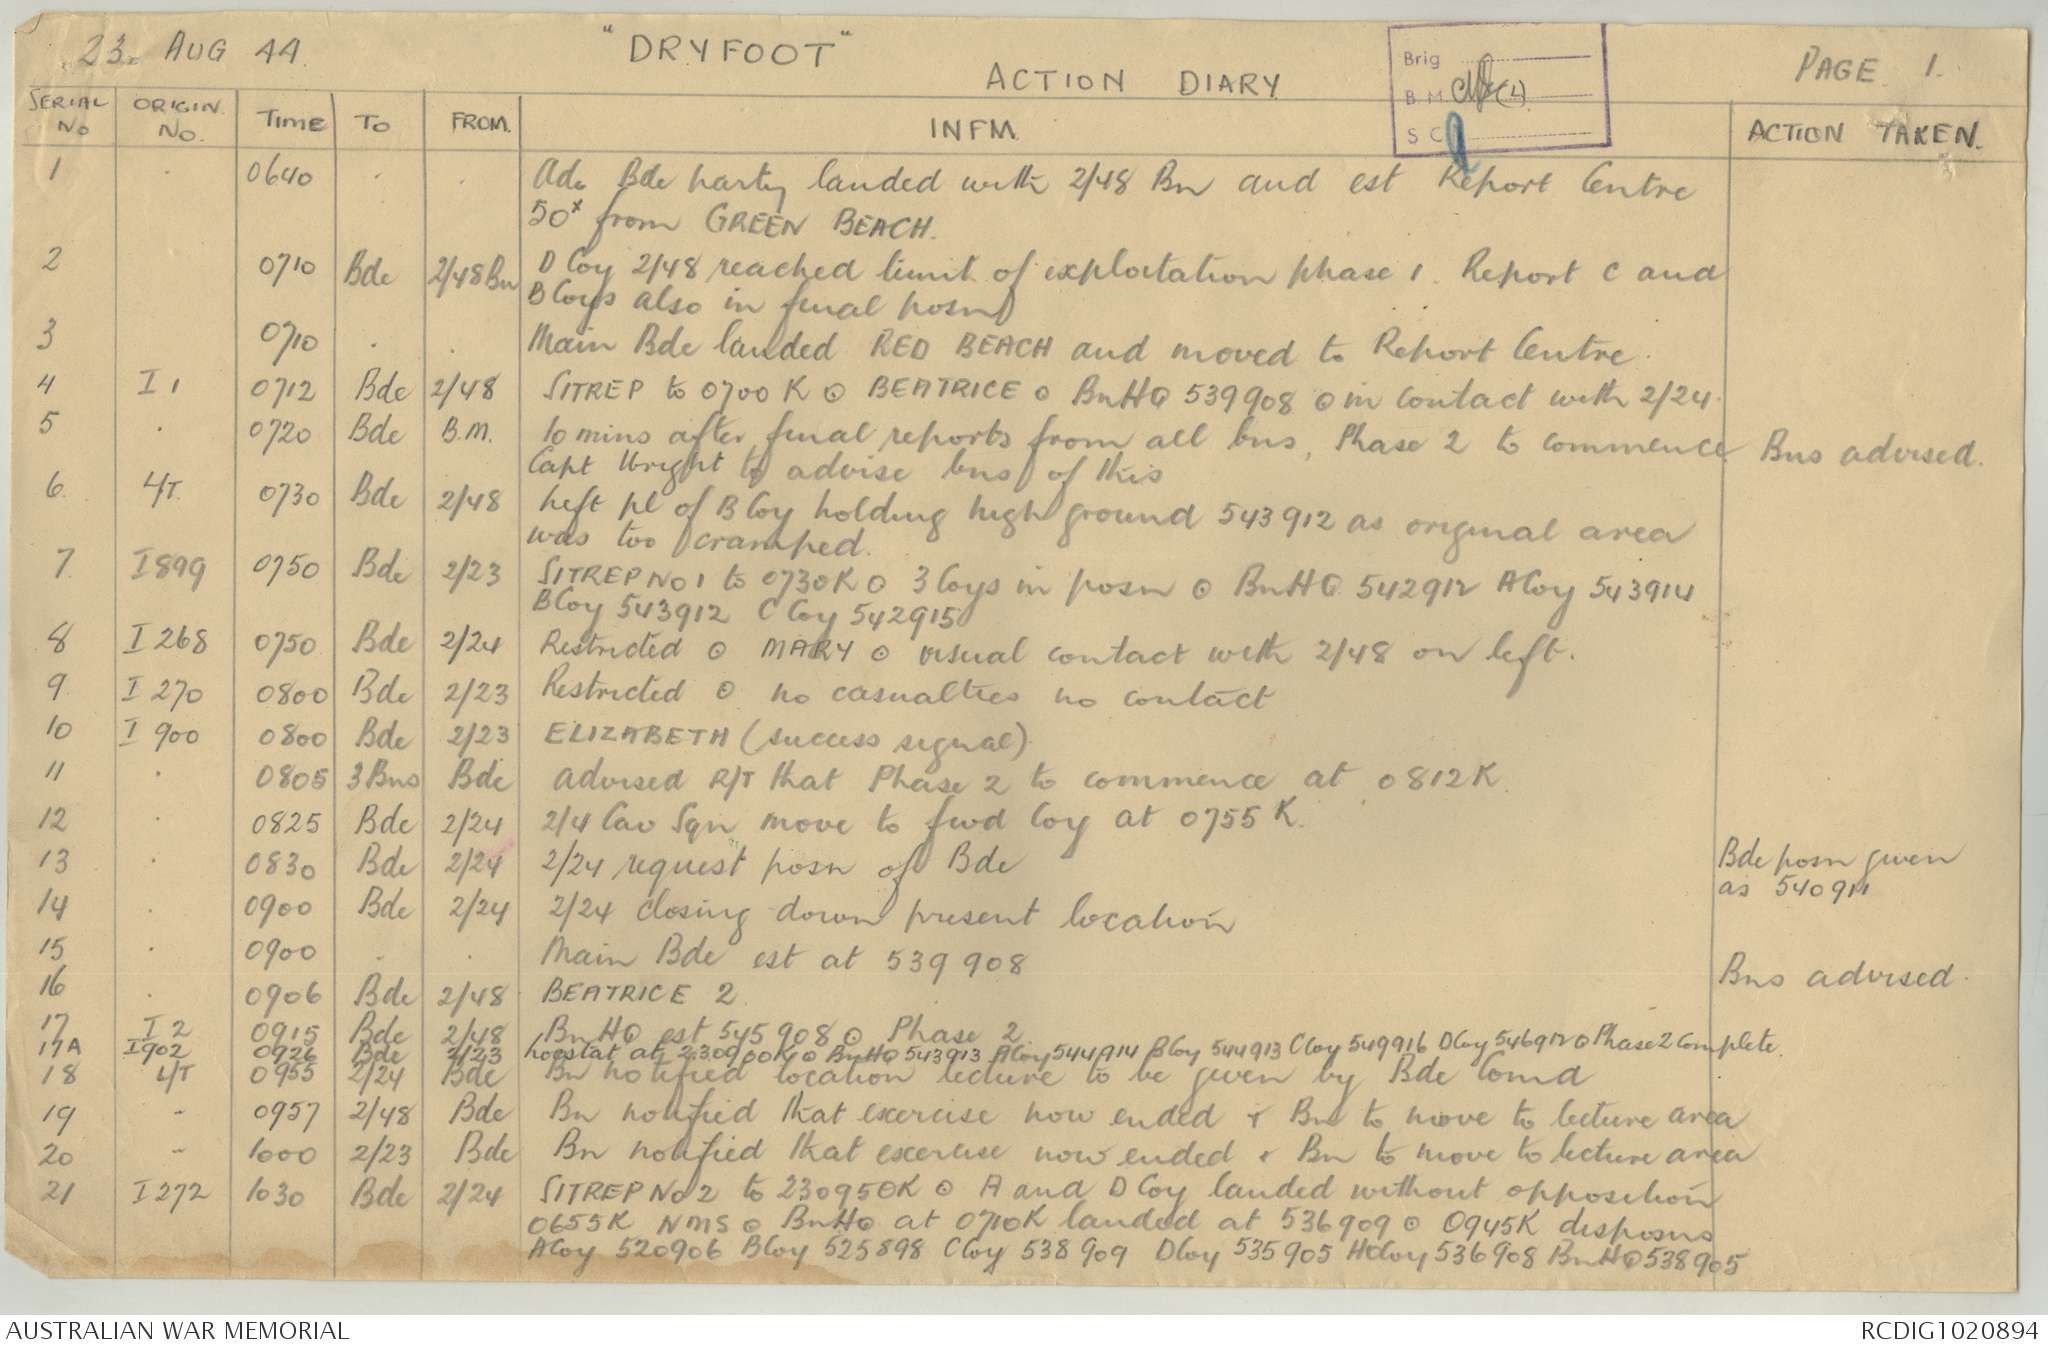 23. AUG 44.
"DRYFOOT"
ACTION DIARY
PAGE 1.
Brig
B.M.
S C
SERIAL No ORIGIN. No. TIME TO FROM. INFM. ACTION TAKEN.
1 . 0640 . . Adv Bde party landed with 2/48 Bn and est Report Centre
50x from GREEN BEACH.
2 0710 Bde 2/48 Bn D Coy 2/48 reached limit of exploitation phase 1. Report C and
B Coys also in final posn
3 0710 . . Main Bde landed RED BEACH and moved to Report Centre.
4 I 1 0712 Bde 2/48 SITREP to 0700 K ⊙ BEATRICE ⊙ BnHQ 539908 ⊙ in contact with 2/24.
5 . 0720 Bde B.M. 10 mins after final reports from all bns, Phase 2 to commence. Bns advised.
Capt Wright to advise bns of this
6. 4/T. 0730 Bde 2/48 Left pl of B Coy holding high ground 543912 as original area
was too cramped.
7. I 899 0750 Bde 2/23 SITREP No 1 to 0730K ⊙ 3 Coys in posn ⊙ BnHQ 542912 A Coy 543914
B Coy 543912 C Coy 542915
8 I 268 0750 Bde 2/24 Restricted ⊙ MARY ⊙ visual contact with 2/48 on left.
9 I 270 0800 Bde 2/23 Restricted ⊙ no casualties no contact
10 I 900 0800 Bde 2/23 ELIZABETH (success signal)
11 . 0805 3 Bns Bde advised R/T that Phase 2 to commence at 0812K.
12 . 0825 Bde 2/24 2/4 Cav Sqn move to fwd Coy at 0755 K.
13 . 0830 Bde 2/24 2/24 request posn of Bde Bde posn given
as 540911
14 . 0900 Bde 2/24 2/24 closing down present location
15 . 0900 . . Main Bde est at 539908 Bns advised.
16 . 0906 Bde 2/48 BEATRICE 2
17 I 2 0915 Bde 2/48 BnHQ est 545908 ⊙ Phase 2
17A I902 0926 Bde 2/23 Locstat at 230900K ⊙ BnHQ 543913 A Coy 544914 B Coy 544913 C Coy 549916 D Coy 546912 ⊙ Phase 2 Complete.
18 4/T 0955 2/24 Bde Bn notified location lecture to be given by Bde Comd
19 - 0957 2/48 Bde Bn notified that exercise now ended + Bn to move to lecture area
20 - 1000 2/23 Bde Bn notified that exercise now ended + Bn to move to lecture area
21 I 272 1030 Bde 2/24 SITREP No 2 to 230950K ⊙ A and D Coy landed without opposition
0655K NMS ⊙ BnHQ at 0710K landed at 536909 ⊙ 0945K disposns
A Coy 520906 B Coy 525898 C Coy 538909 D Coy 535905 HQ Coy 536908 BnHQ 538905
AUSTRALIAN WAR MEMORIAL
RCDIG1020894